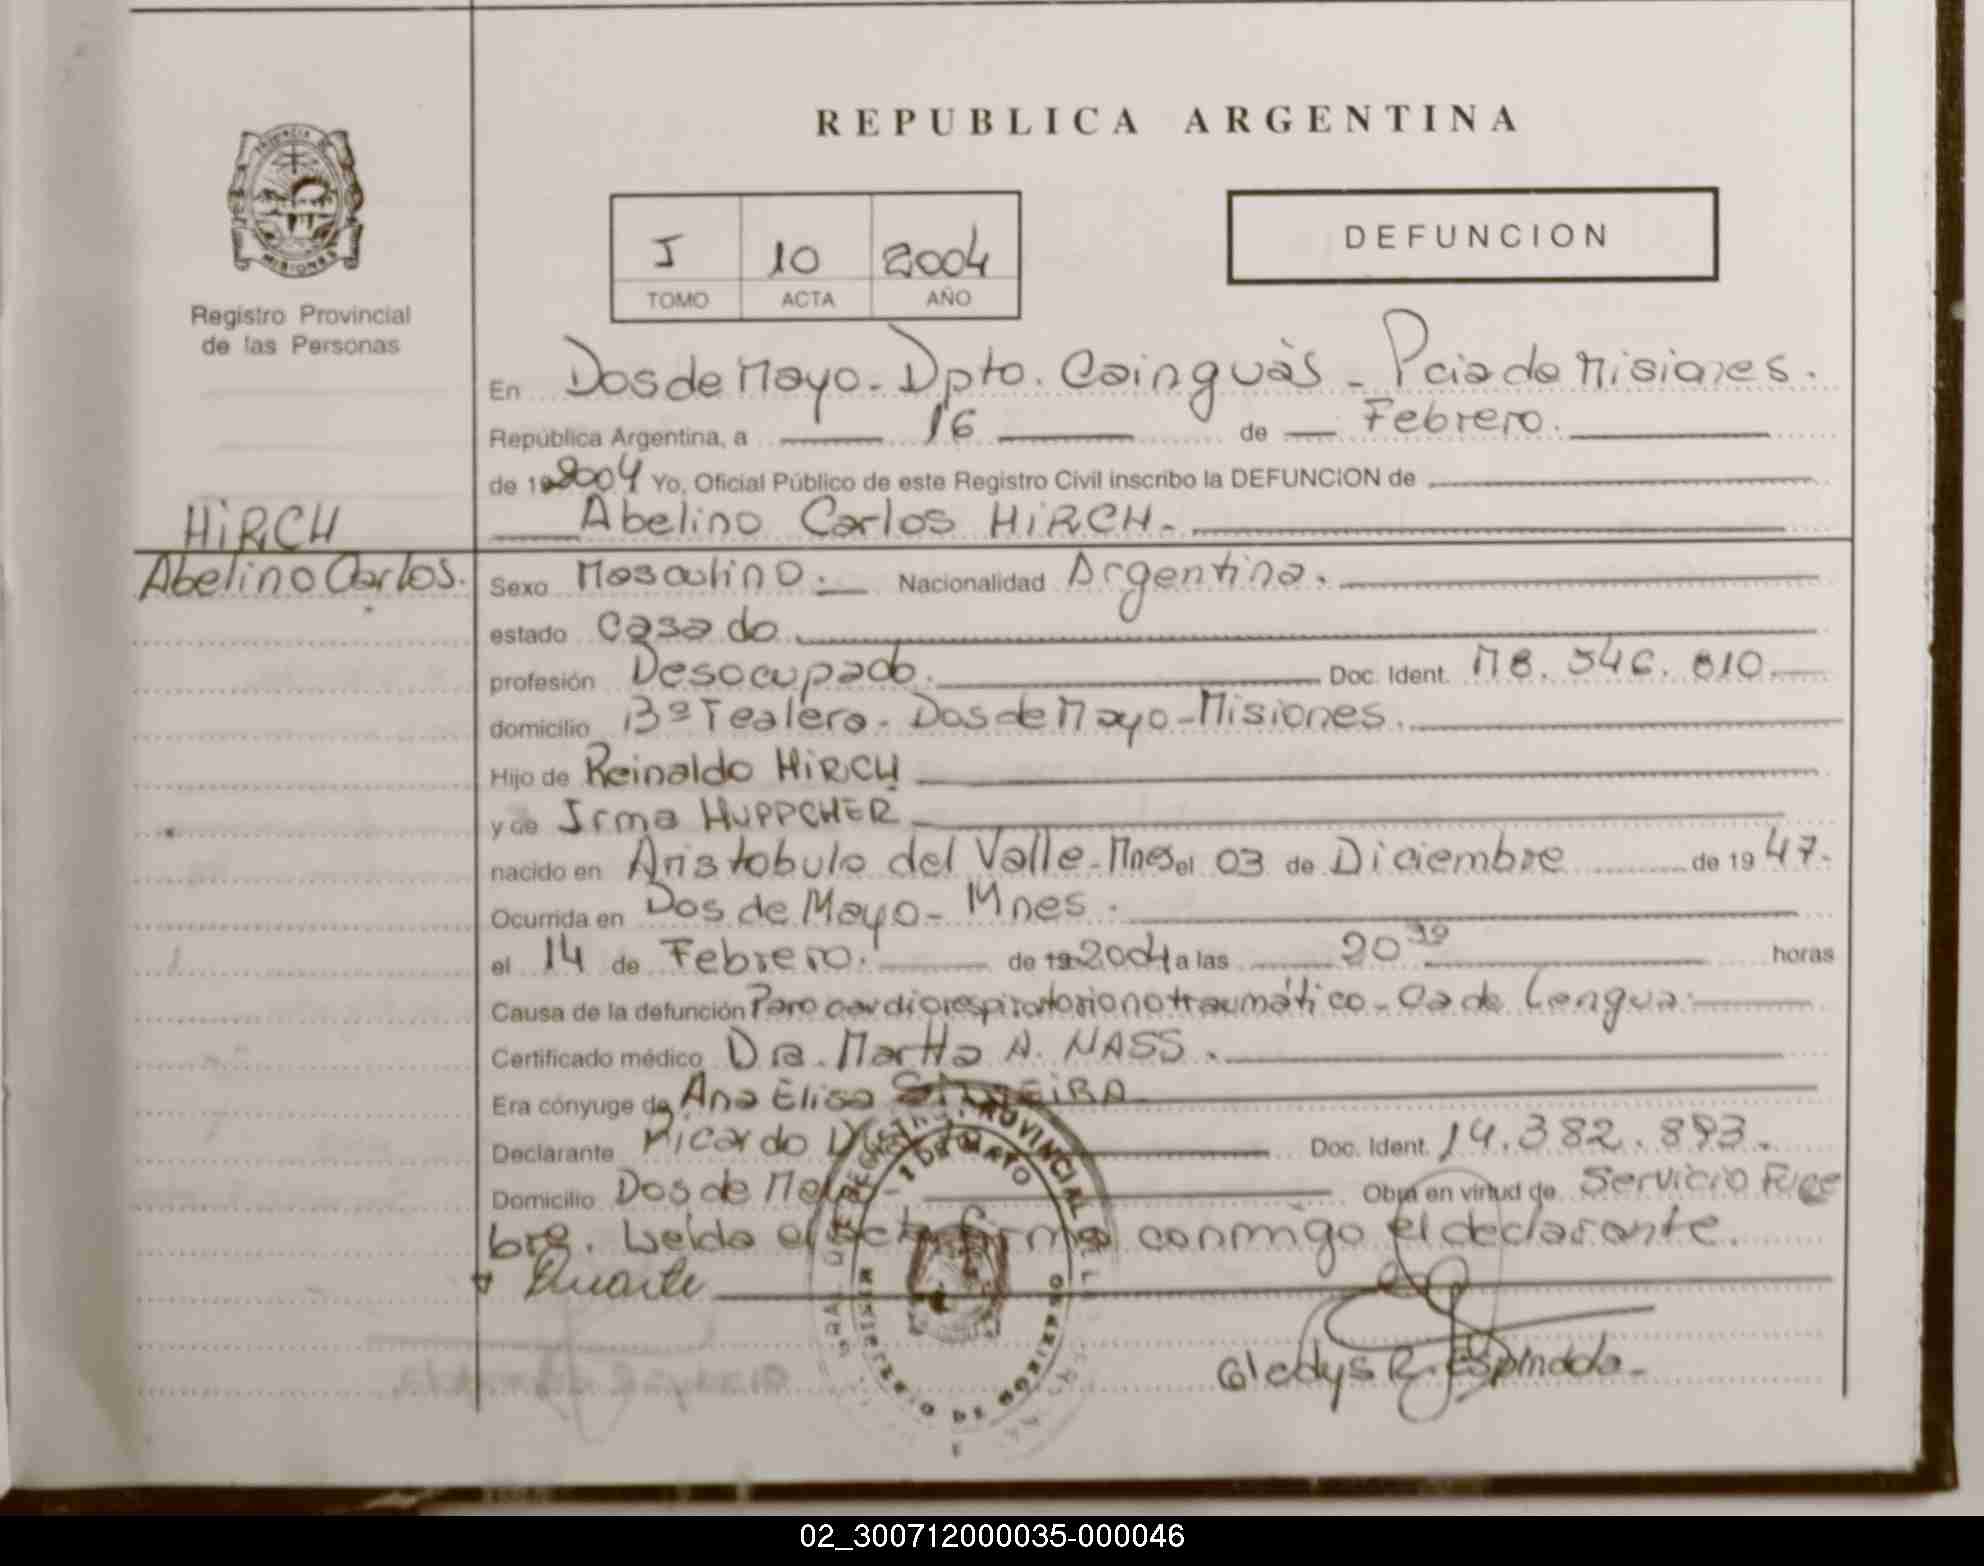 REPUBLICA ARGENTINA
PROVINCIA DE
MISIONES
Registro Provincial
de las Personas
I 10 2004
TOMO ACTA AÑO
DEFUNCION
En Dos de Mayo - Dpto. Cainguàs - Pcia de Misiones.
República Argentina, a 16 de Febrero.
de 19 2004 Yo, Oficial Público de este Registro Civil inscribo la DEFUNCION de
Abelino Carlos HiRCH.
HiRCH
Abelino Carlos.
Sexo Masculino. Nacionalidad Argentina.
estado Casado
profesión Desocupado. Doc. Ident. M8. 546. 810.
domicilio Bº Tealera - Dos de Mayo - Misiones.
Hijo de Reinaldo HiRCH
y de Irma HUPPCHER
nacido en Aristobulo del Valle - Mnes el 03 de Diciembre de 19 47.
Ocurrida en Dos de Mayo - Mnes.
el 14 de Febrero. de 19 2004 a las 20 30 horas
Causa de la defunción Paro cardiorespiratorio no traumático - Ca de Lengua.
Certificado médico Dra. Martha A. NASS.
Era cónyuge de Ana Elisa
Declarante Ricardo Doc. Ident. 14.382.893.
Domicilio Dos de Mayo Obra en virtud de Servicio Fúne
bre. Leída el acta firma conmigo el declarante.
Duarte
Gladys R. Espindola.
02_300712000035-000046